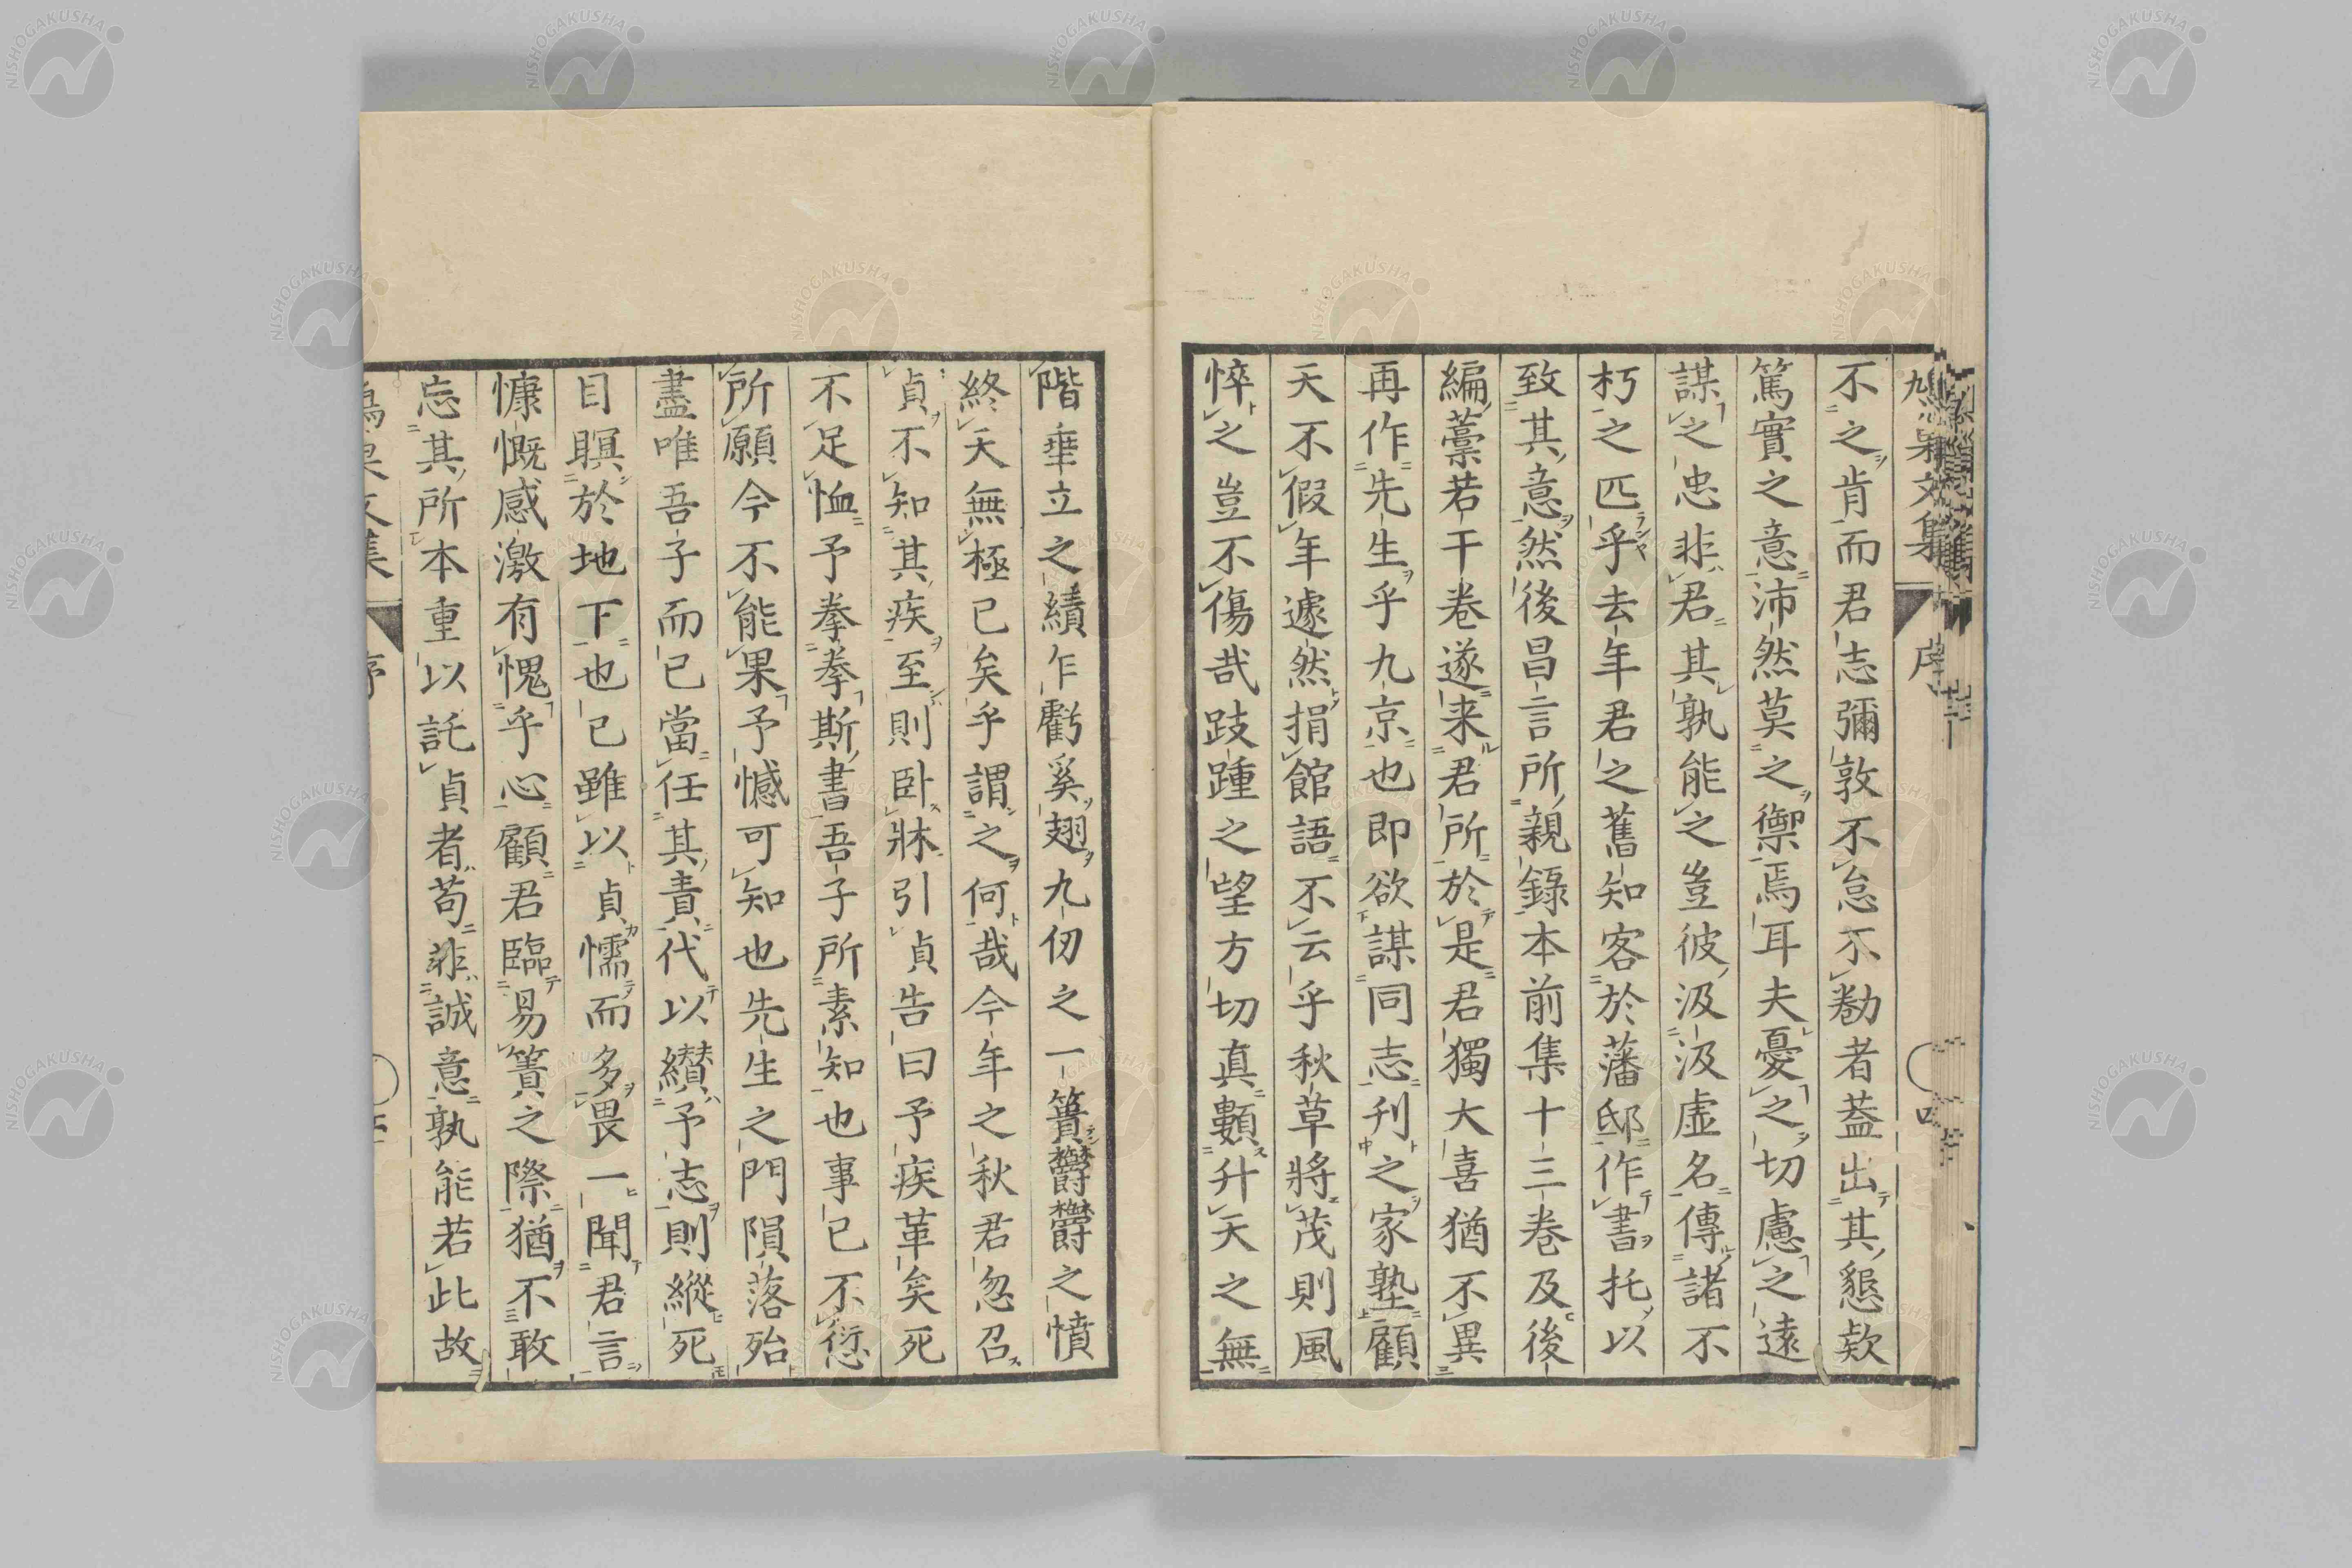 不之肯而君志彌敦不怠不勌者葢出其懇欵
篤實之意沛然莫之禦焉耳夫憂之切慮之遠
謀之忠非君其孰能之豈彼汲汲虚名傳諸不
朽之匹乎去年君之舊知客於藩邸作書托以
致其意然後昌言所親錄本前集十三巻及後
編藁若干巻遂来君所於是君獨大喜猶不異
再作先生乎九京也即欲謀同志刋之家塾顧
天不假年遽然捐館語不云乎秋草將茂則風
悴之豈不傷哉跂踵之望方切真顥升天之無
階垂立之績乍虧奚翅九仞之一簣欝欝之憤
終天無極已矣乎謂之何哉今年之秋君忽召
貞不知其疾至則臥牀引貞告曰予疾革矣死
不足恤予拳拳斯書吾子所素知也事已不愆
所願今不能果予憾可知也先生之門隕落殆
盡唯吾子而已當任其責代以纉予志則縱死
目瞑於地下也已雖以貞懦而多畏一聞君言
慷慨感激有愧乎心顧君臨易簀之際猶不敢
忘其所本重以託貞者苟非誠意孰能若此故
NISHOGAKUSHA